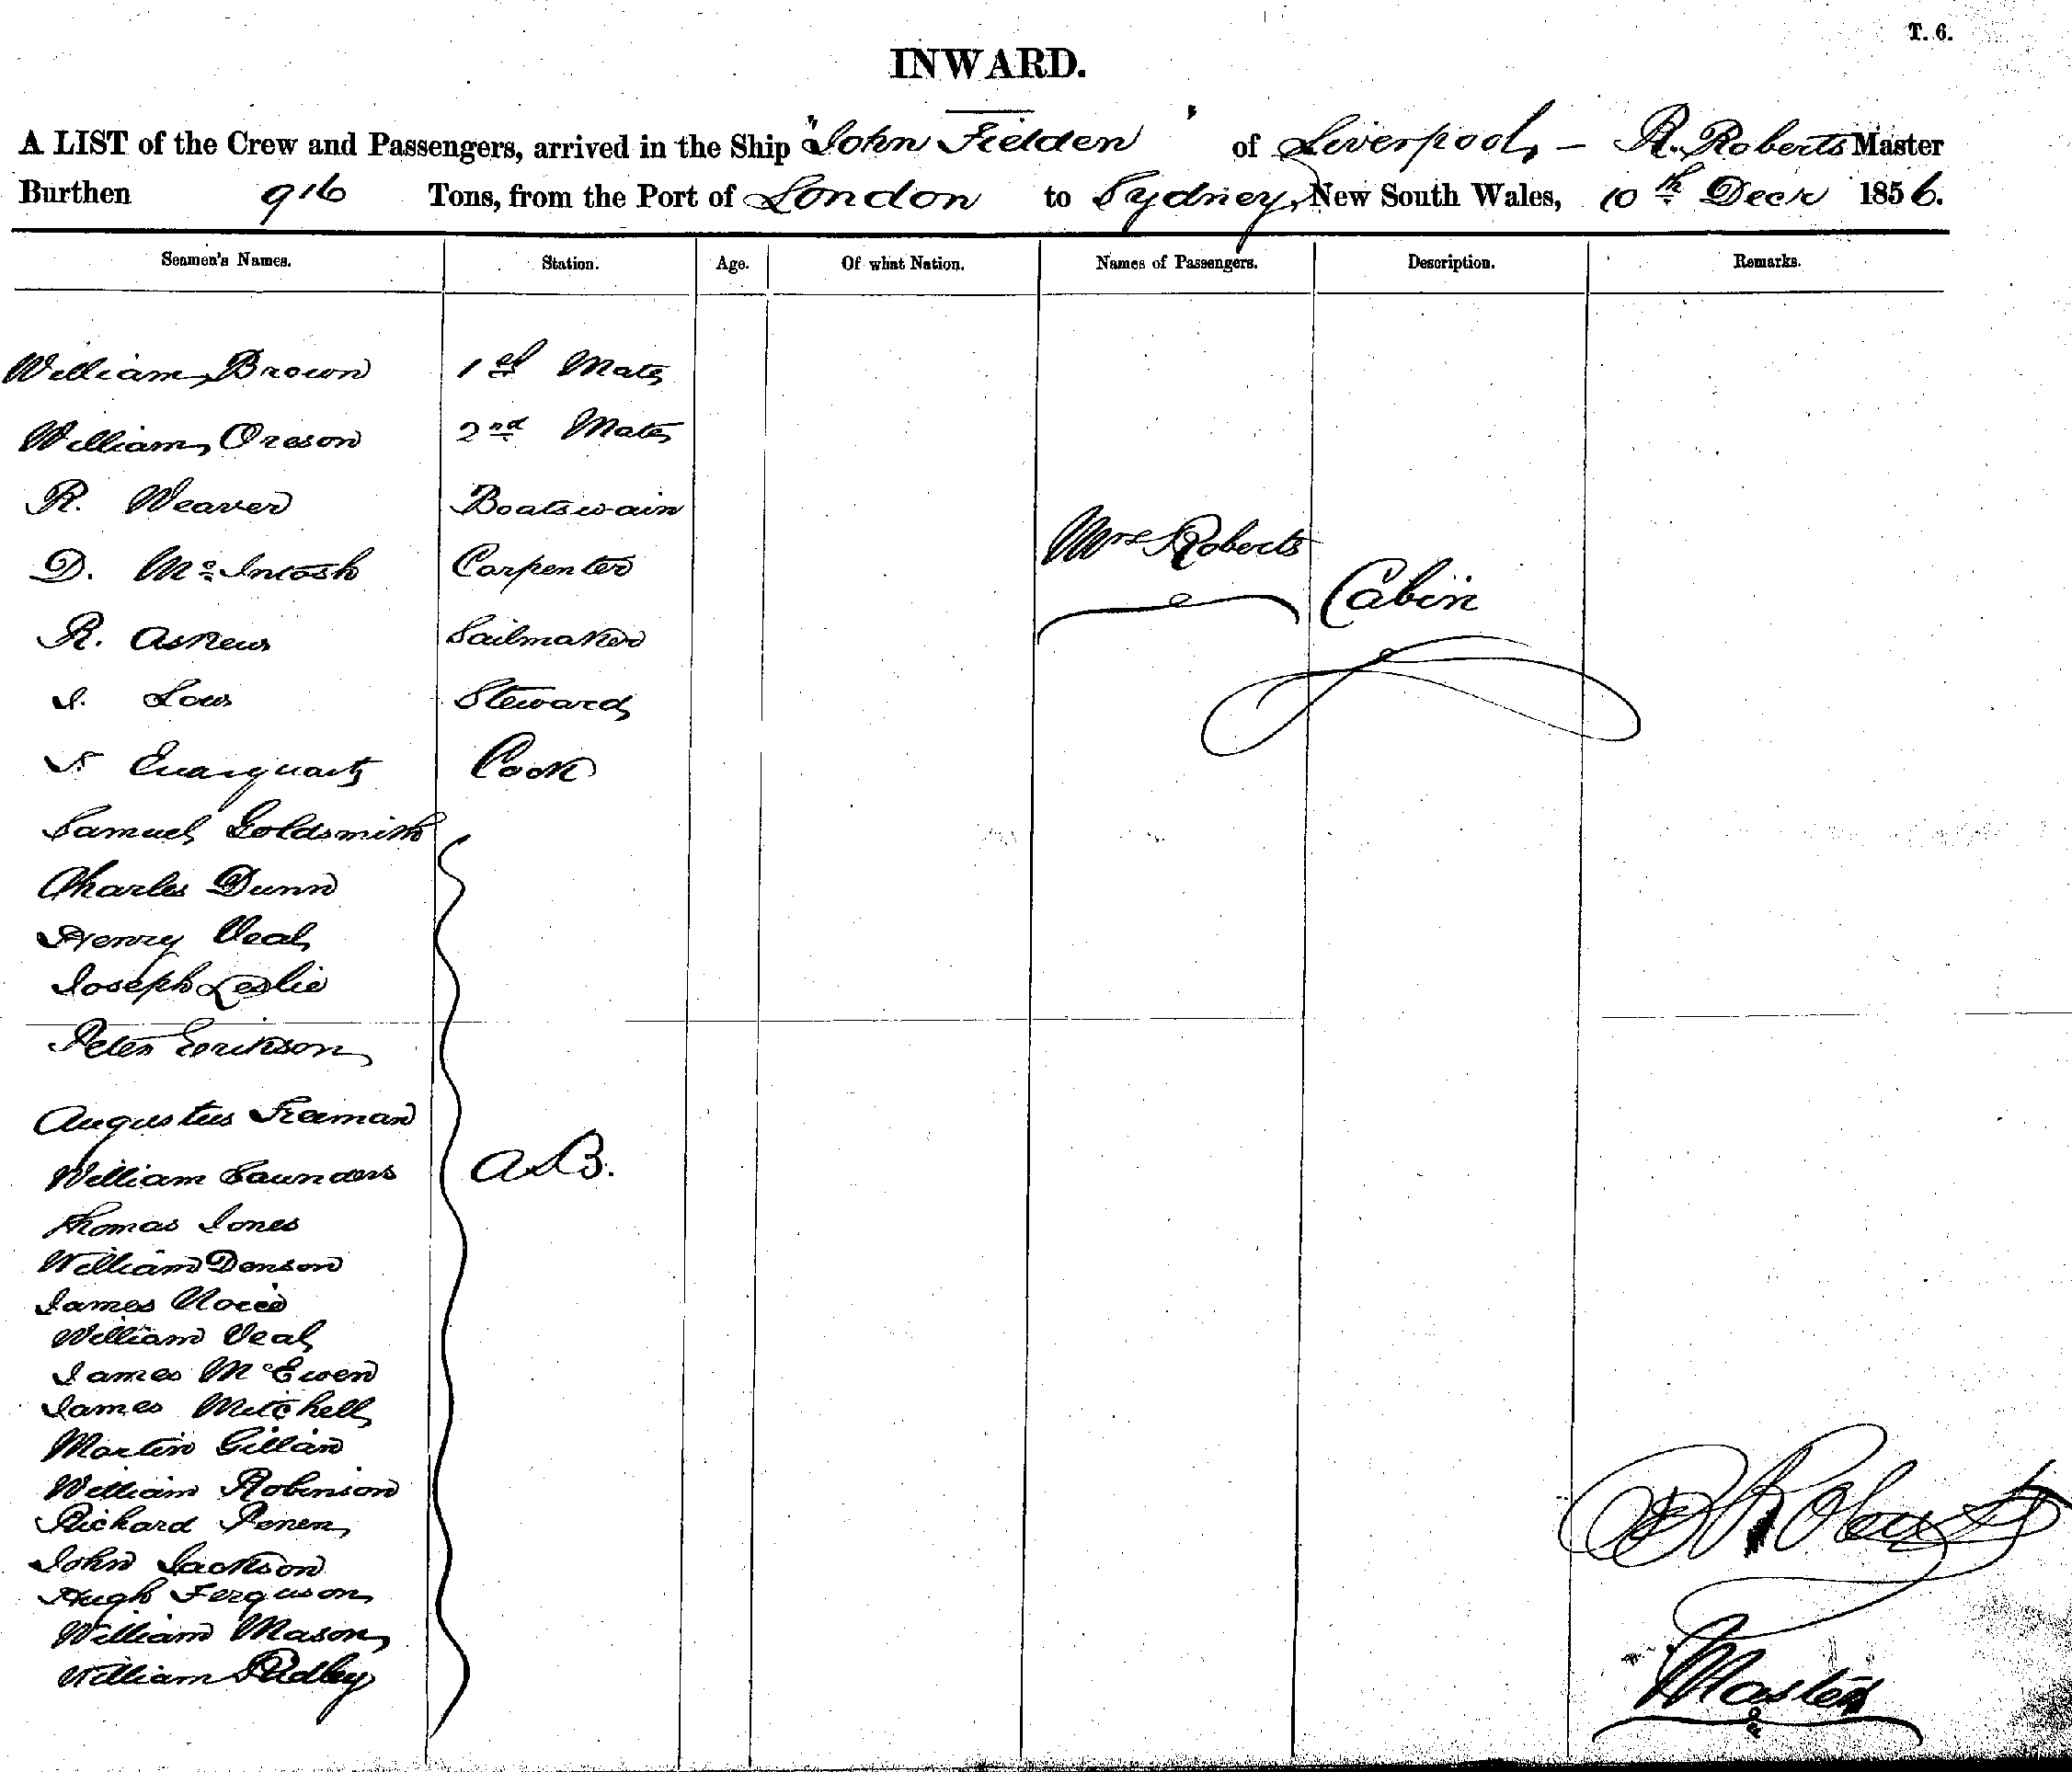 T. 6.
INWARD.
A LIST of the Crew and Passengers, arrived in the Ship "John Fielden" of Liverpool, - R. Roberts Master
Burthen 916 Tons, from the Port of London to Sydney, New South Wales, 10th Decr 1856.
Seamen's Names. Station. Age. Of what Nation. Names of Passengers. Description. Remarks.
William Brown 1st Mate
William Oreson 2nd Mate
R. Weaver Boatswain
Mrs Roberts
D. McIntosh Carpenter
Cabin
R. Askew Sailmaker
J. Low Steward
Cook
Samuel Goldsmith
Charles Dunn
Henry Veal
Joseph Leslie
Peter Erikson
Augustus Freeman
William Saunders A.B.
Thomas Jones
William Denson
James
William Veal
James McEwen
James Mitchell
Martin Gillan
William Robinson
Richard
R Roberts
John Jackson
Hugh Ferguson
William Mason
William Padley
Master